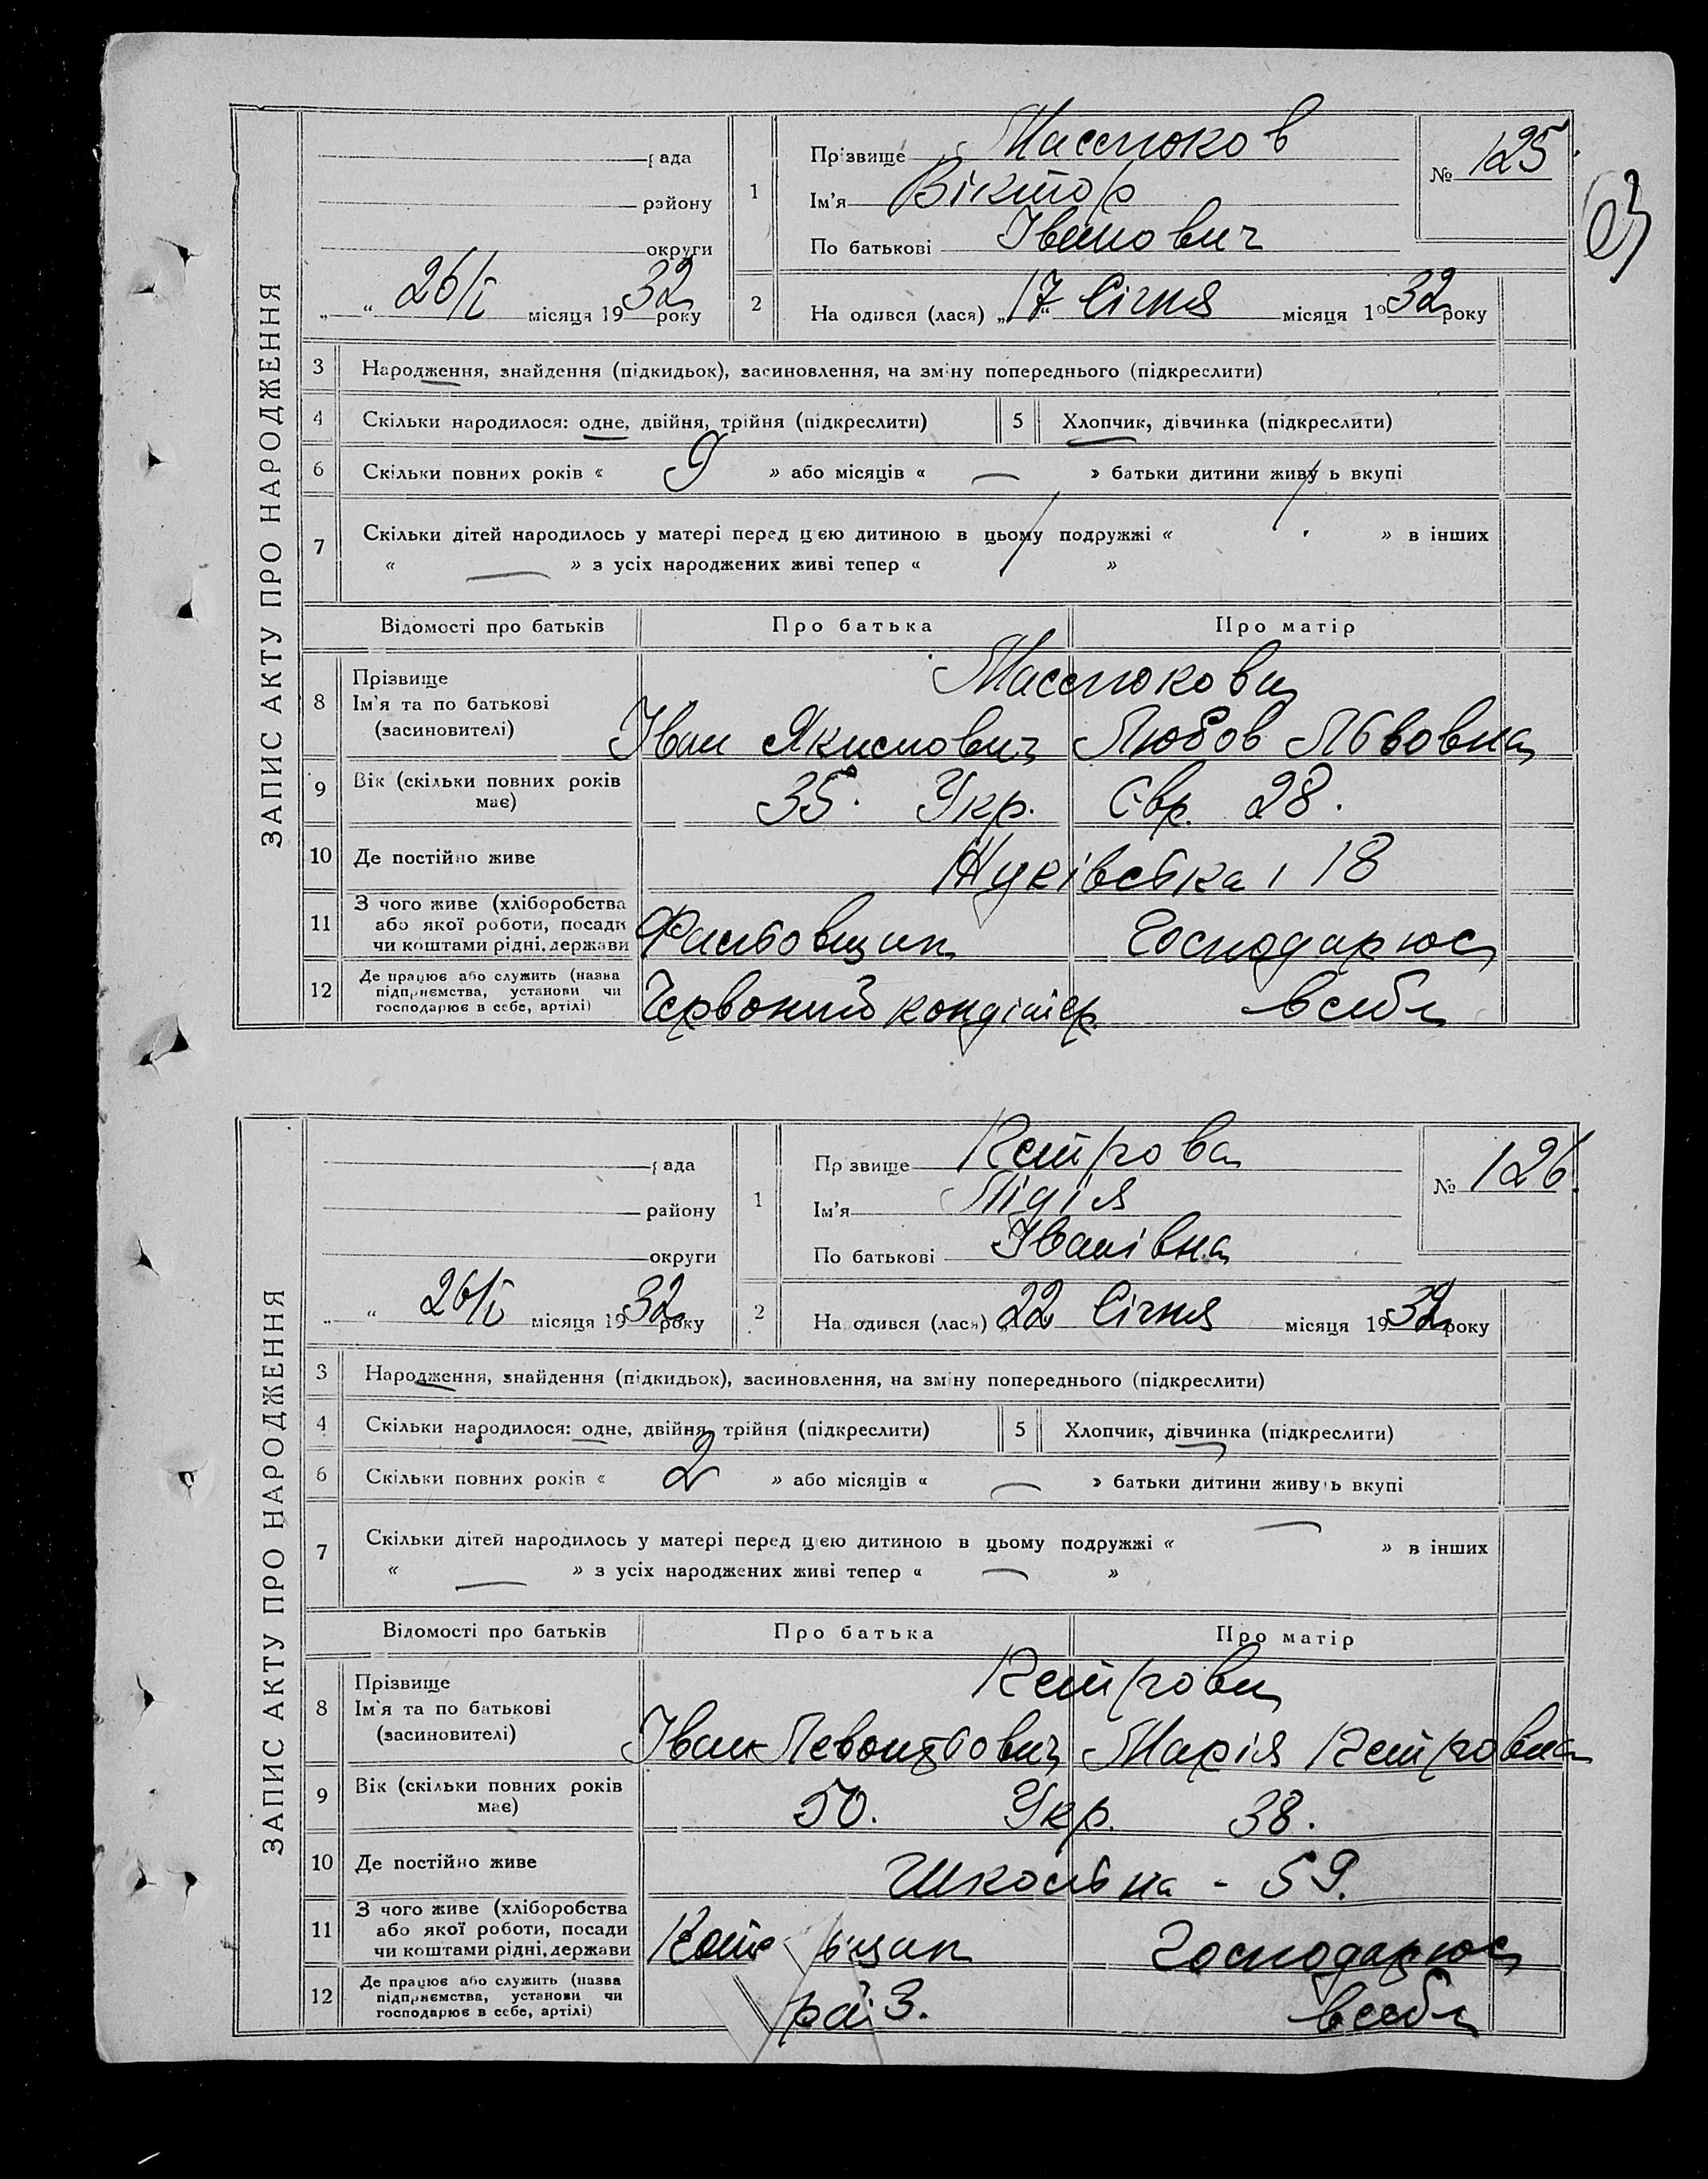 ЗАПИС АКТУ ПРО НАРОДЖЕННЯ
рада
району
округи
„ “ 26/I місяця 1932 року
1 Прізвище Масюков
Ім'я Віктор
По батькові Іванович
№ 125.
2 На одився (лася) „17“ Січня місяця 1932 року
3 Народження, знайдення (підкидьок), засиновлення, на зміну попереднього (підкреслити)
4 Скільки народилося: одне, двійня, трійня (підкреслити) 5 Хлопчик, дівчинка (підкреслити)
6 Скільки повних років « 9 » або місяців « — » батьки дитини живу ь вкупі
7 Скільки дітей народилось у матері перед цією дитиною в цьому подружжі « / » в інших
« — » з усіх народжених живі тепер « / »
Відомості про батьків Про батька Про матір
8 Прізвище
Ім'я та по батькові
(засиновителі)
Іван Якимович Любов Львовна
9 Вік (скільки повних років має) 35. Укр. Євр. 28.
10 Де постійно живе 18
11 З чого живе (хліборобства або якої роботи, посади чи коштами рідні, держави Господарює
12 Де працює або служить (назва підприємства, установи чи господарює в себе, артілі) Червоний кондітер в себе
ЗАПИС АКТУ ПРО НАРОДЖЕННЯ
рада
району
округи
„ “ 26/I місяця 1932 року
1 Пр звище Петрова
Ім'я Лідія
По батькові Іванівна
№ 126.
2 На одився (лася) „22 Січня місяця 1932 року
3 Народження, знайдення (підкидьок), засиновлення, на зміну попереднього (підкреслити)
4 Скільки народилося: одне, двійня, трійня (підкреслити) 5 Хлопчик, дівчинка (підкреслити)
6 Скільки повних років « 2 » або місяців « — » батьки дитини живу ь вкупі
7 Скільки дітей народилось у матері перед цією дитиною в цьому подружжі « — » в інших
« — » з усіх народжених живі тепер « — »
Відомості про батьків Про батька Про матір
Петрови
8 Прізвище
Ім'я та по батькові
(засиновителі)
Іван Левонтьович Марія Петровна
9 Вік (скільки повних років має) 50. Укр. 38.
10 Де постійно живе Шкільна - 59.
11 З чого живе (хліборобства або якої роботи, посади чи коштами рідні, держави Господарює
12 Де працює або служить (назва підприємства, установи чи господарює в себе, артілі) в себе